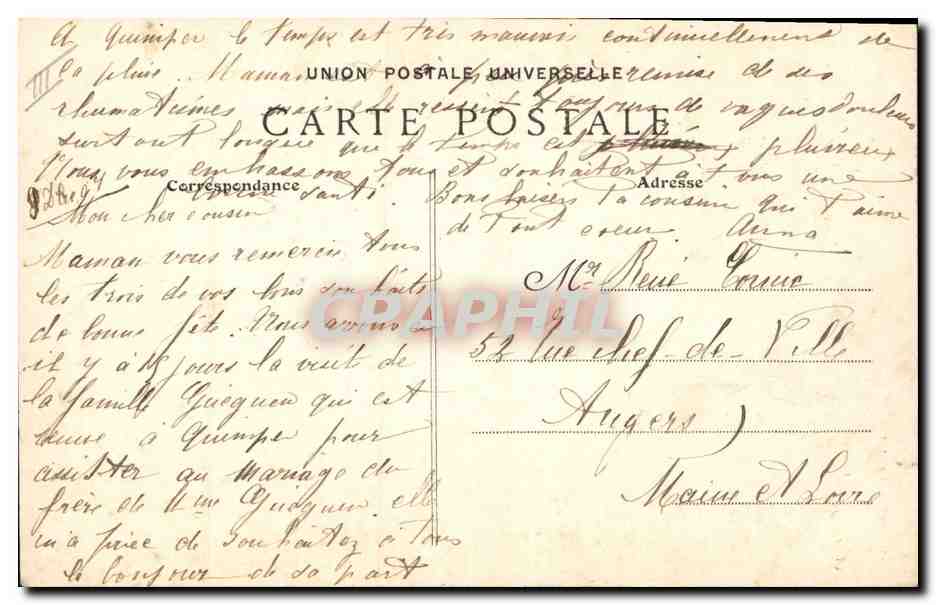 A Quimper le temps est très mauvais continuellement de
la pluie. Maman est à peu près remise de ses
UNION POSTALE UNIVERSELLE
rhumatismes mais elle ressent toujours de vagues douleurs
CARTE POSTALE
surtout lorsque que le temps est pluvieux
Nous vous embrassons tous et souhaitent à tous une
Correspondance
Adresse
bonne santé. Bons baisers Ta cousine qui t'aime
de tout coeur. Anna
III
9
Mon cher cousin
Maman vous remercie tous
les trois de vos bons souhaits
de bonne fête. Nous avons eu
il y a 15 jours la visite de
la famille Guéguen qui est
venue à Quimper pour
assister au mariage du
frère de Mme Guéguen. elle
m'a priée de souhaitez à tous
le bonjour de sa part
Mr René
52 rue chef-de-Ville
Angers
Maine et Loire
CPAPHIL